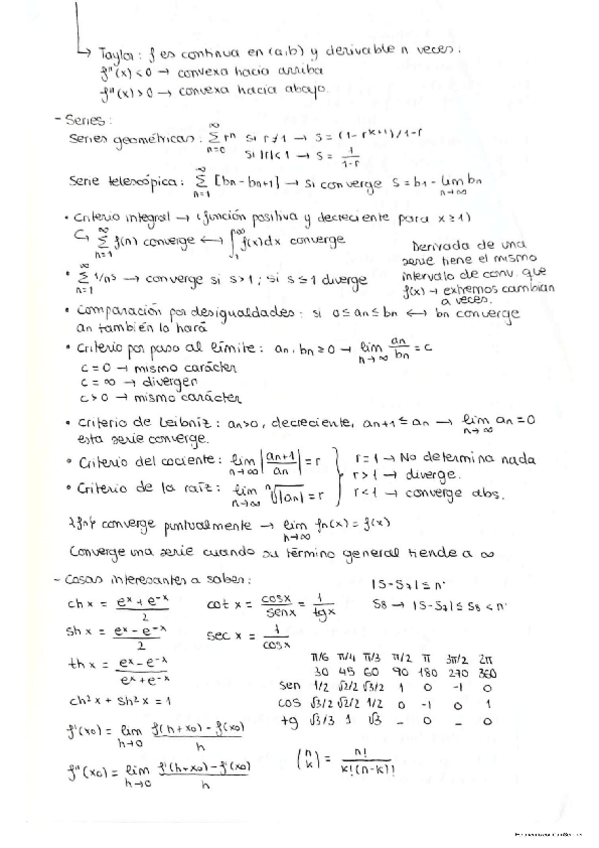 ↳ Taylor: f es continua en (a,b) y derivable n veces.
f''(x) < 0 → convexa hacia arriba
f''(x) > 0 → convexa hacia abajo.
- Series:
Series geométricas: ∞ Σ n=0 rⁿ si r≠1 → S = (1-r^(k+1))/1-r
si |r|<1 → S = 1/(1-r)
Serie telescópica: ∞ Σ n=1 [bn - bn+1] → si converge S = b1 - lim n→∞ bn
• Criterio integral → (función positiva y decreciente para x ≥ 1)
↳ ∞ Σ n=1 f(n) converge ⟷ ∫₁^∞ f(x)dx converge
Derivada de una
serie tiene el mismo
intervalo de conv. que
f(x) → extremos cambian
a veces.
• ∞ Σ n=1 1/nˢ → converge si s>1; si s ≤ 1 diverge
• Comparación por desigualdades: si 0 ≤ an ≤ bn ⟷ bn converge
an también lo hará
• Criterio por paso al límite: an, bn ≥ 0 → lim n→∞ an/bn = c
c = 0 → mismo carácter
c = ∞ → divergen
c > 0 → mismo carácter
• Criterio de Leibniz: an>0, decreciente, an+1 ≤ an → lim n→∞ an = 0
esta serie converge.
• Criterio del cociente: lim n→∞ |an+1/an| = r
• Criterio de la raíz: lim n→∞ ⁿ√|an| = r
r = 1 → No determina nada
r > 1 → diverge.
r < 1 → converge abs.
{fn} converge puntualmente → lim n→∞ fn(x) = f(x)
Converge una serie cuando su término general tiende a ∞
- Cosas interesantes a saber:
ch x = (eˣ + e⁻ˣ)/2
sh x = (eˣ - e⁻ˣ)/2
th x = (eˣ - e⁻ˣ)/(eˣ + e⁻ˣ)
ch²x + sh²x = 1
f'(x0) = lim h→0 (f(h+x0) - f(x0))/h
f''(x0) = lim h→0 (f'(h+x0) - f'(x0))/h
cot x = cosx/senx = 1/tgx
sec x = 1/cosx
|S-S7| ≤ n·
S8 → |S-S7| ≤ S8 < n·
π/6 π/4 π/3 π/2 π 3π/2 2π
30 45 60 90 180 270 360
sen 1/2 √2/2 √3/2 1 0 -1 0
cos √3/2 √2/2 1/2 0 -1 0 1
tg √3/3 1 √3 - 0 - 0
(n k) = n!/(k!(n-k)!)